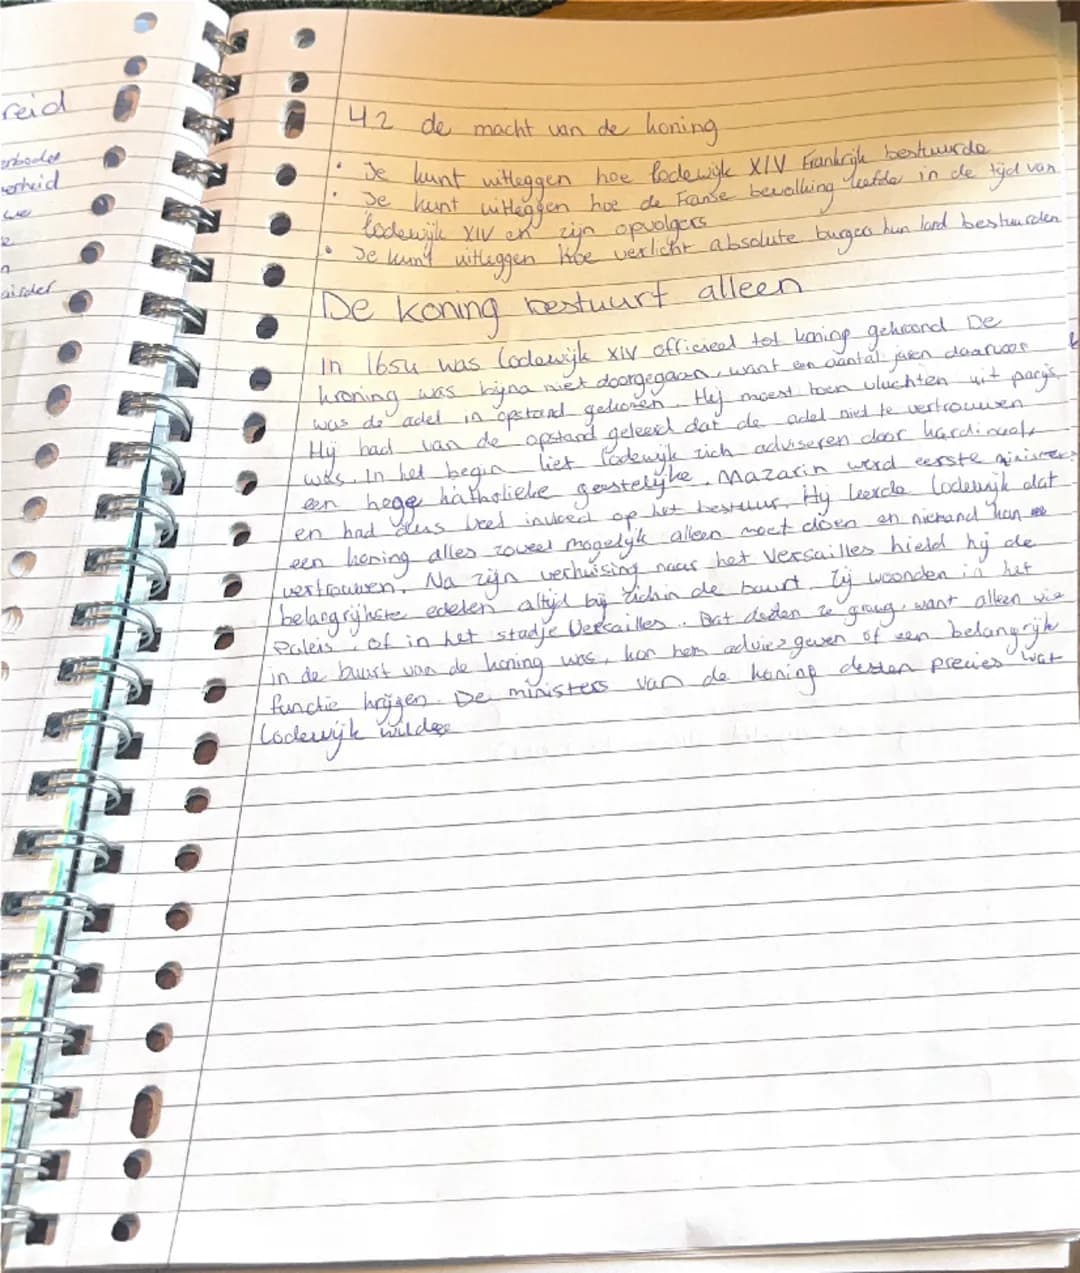 reid
erheid
airder
4.2 de macht van de koning
• Je kunt uitleggen hoe Lodewijk XIV Frankrijk bestuurde
• Je kunt uitleggen hoe de Franse bevolking leefde in de tijd van
Lodewijk XIV en zijn opvolgers
• Je kunt uitleggen hoe verlicht absolute burgers hun land bestuurden
De koning bestuurt alleen
In 1654 was Lodewijk XIV officieel tot koning gekroond De
kroning was bijna niet doorgegaan, want een aantal jaren daarvoor
was de adel in opstand gekomen. Hij moest toen vluchten uit parijs
Hij had van de opstand geleerd dat de adel niet te vertrouwen
was. In het begin liet Lodewijk zich adviseren door kardinaal,
een hoge katholieke geestelijke. Mazarin werd eerste minister
en had dus veel invloed op het bestuur. Hij leerde Lodewijk dat
een koning alles zoveel mogelijk alleen moet doen en niemand kan
vertrouwen. Na zijn verhuizing naar het Versailles hield hij de
belangrijkste edelen altijd bij zich in de buurt. Zij woonden in het
Paleis, of in het stadje Versailles. Dat deden ze graag, want alleen wie
in de buurt van de koning was, kon hem advies geven of een belangrijk
functie krijgen. De ministers van de koning deden precies wat
Lodewijk wilde